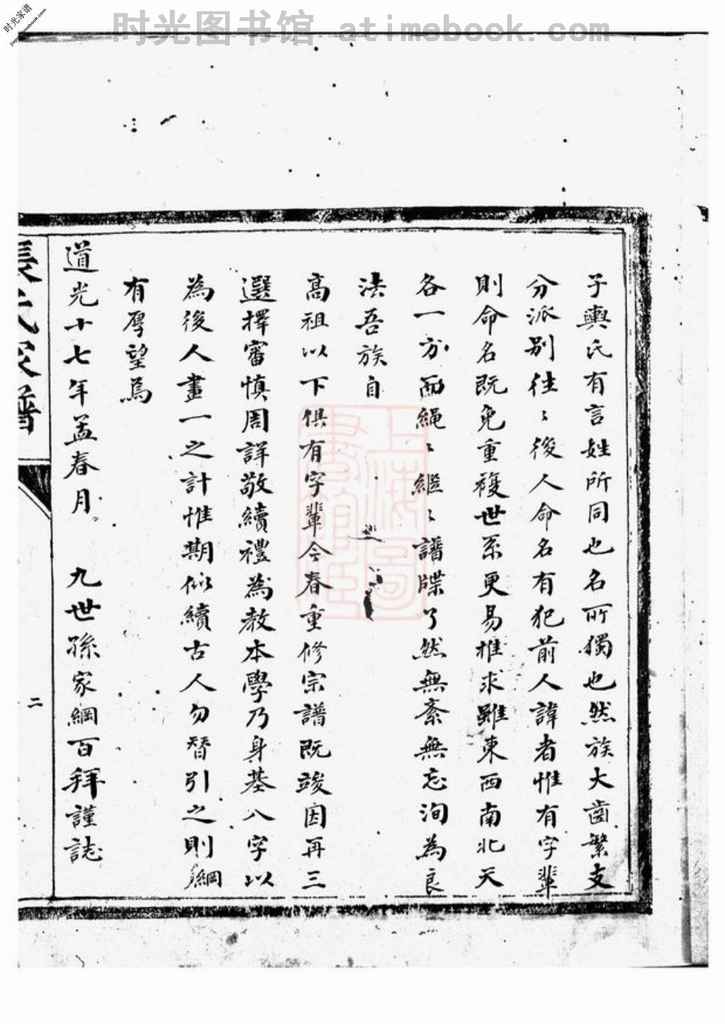 时光图书馆 atimebook.com
时光家谱
子輿氏有言姓所同也名所獨也然族大齒繁支
分派別往〻後人命名有犯前人諱者惟有字輩
則命名既免重複世系更易推求雖東西南北天
各一方而繩〻繼〻譜牒了然無紊無忘洵為良
法吾族自
高祖以下俱有字輩今春重修宗譜既竣因再三
選擇審慎周詳敬續禮為教本學乃身基八字以
為後人畫一之計惟期似續古人勿替引之則綱
有厚望焉
道光十七年孟春月 九世孫家綱百拜謹誌
張氏家譜
二